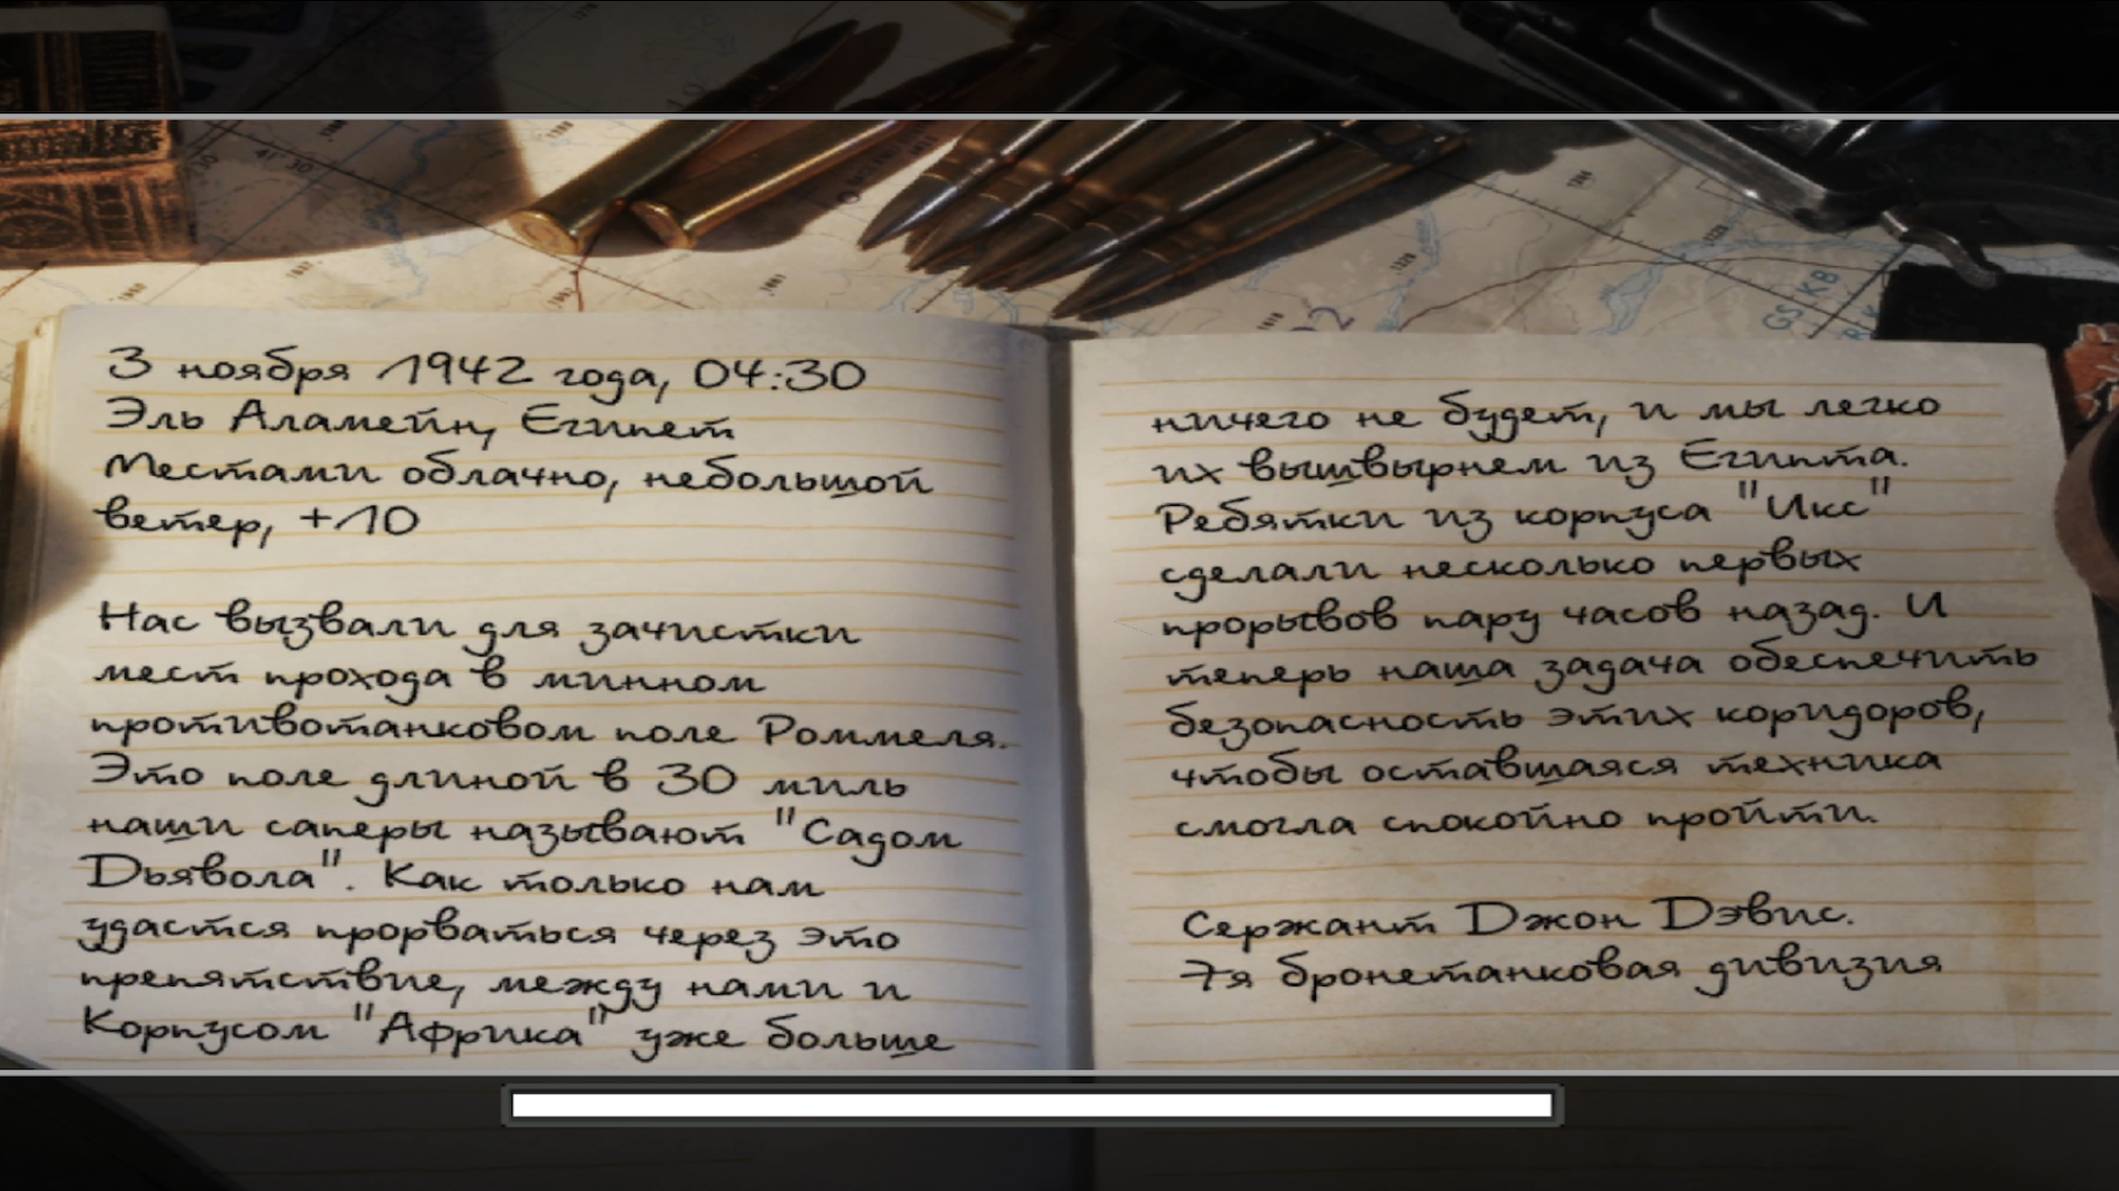 3 ноября 1942 года, 04:30
Эль Аламейн, Египет
Местами облачно, небольшой
ветер, +10
Нас вызвали для зачистки
мест прохода в минном
противотанковом поле Роммеля.
Это поле длиной в 30 миль
наши саперы называют "Садом
Дьявола". Как только нам
удастся прорваться через это
препятствие, между нами и
Корпусом "Африка" уже больше
ничего не будет, и мы легко
их вышвырнем из Египта.
Ребятки из корпуса "Икс"
сделали несколько первых
прорывов пару часов назад. И
теперь наша задача обеспечить
безопасность этих коридоров,
чтобы оставшаяся техника
смогла спокойно пройти.
Сержант Джон Дэвис.
7я бронетанковая дивизия